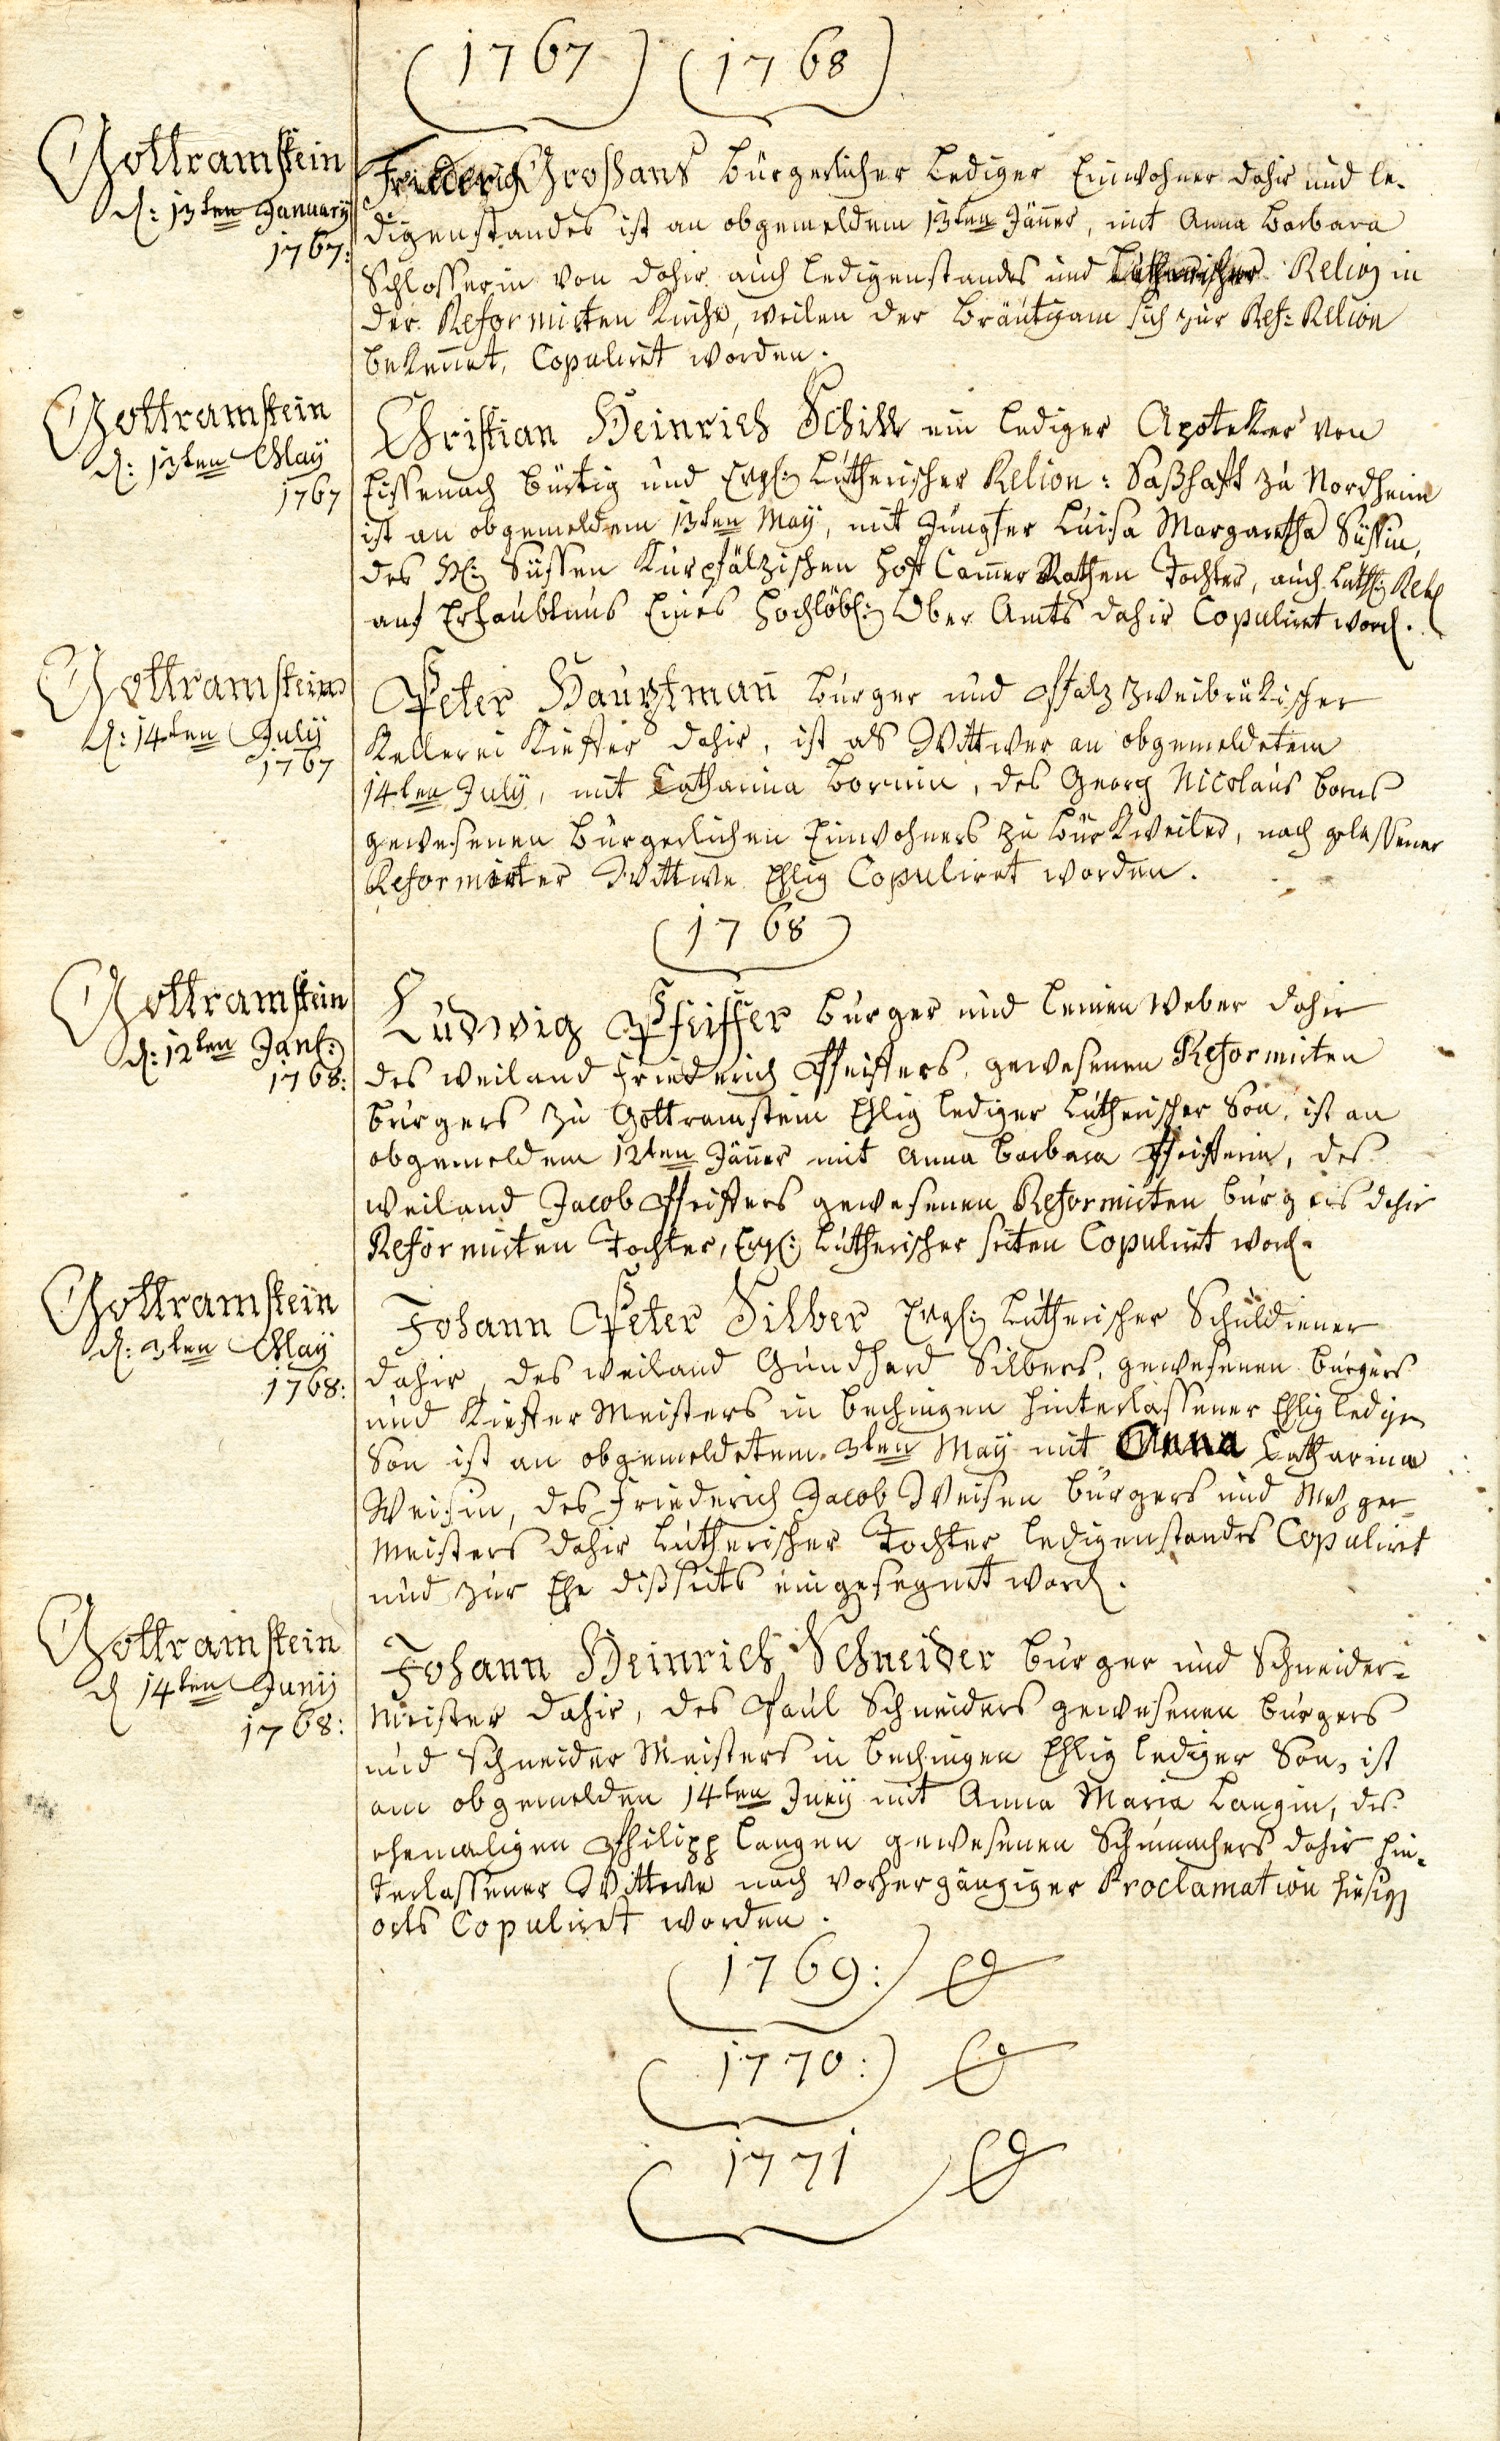 1767 1768
Gottramstein
d: 13ten January
1767:
Friederich Großhans Bürgerlicher Lediger Einwohner dahir und le-
digenstandes ist an obgemeldem 13ten Jäner, mit Anna Barbara
Schlosserin von dahir auch Ledigenstandes und Lutherischer Relig in
der Reformirten Kirche, weilen der Bräutgam sich zur Ref: Relion
bekennet, Copuliret worden.
Gottramstein
d: 13ten May
1767
Christian Heinrich Schill ein Lediger Apoteker von
Eissenach bürtig und Evgl: Lutherischer Relion: Saßhafft zu Nordheim
ist an obgemeldem 13ten May, mit Jungfer Luisa Margaretha Süssin,
des H: Süssen Kurpfälzischen Hoff Camer Rathen Tochter, auch Luth: Rel
auf Erlaubtnus Eines Hochlöbl: Ober Amts dahir Copuliret word.
Gottramstein
d: 14ten July
1767
Peter Hauptman Burger und Pfalz Zweibrükischer
Kellerei Kieffer dahir, ist als Wittwer an obgemeldetem
14ten July, mit Catharina Bornin, des Georg Nicolaus Borns
gewesenen Bürgerlichen Einwohners zu Burkweiler, nach gelassener
Reformirter Wittwe Ehlig Copuliret worden.
1768
Gottramstein
d: 12ten Jan:
1768:
Ludwig Pfeiffer Burger und Leinen Weber dahir
des weiland Friederich Pfeiffers, gewesenen Reformirten
Burgers zu Gottramstein Ehlig Lediger Lutherischer Son, ist an
obgemeldem 12ten Jäner mit Anna Barbara Pfeifferin, des
weiland Jacob Pfeiffers gewesenen Reformirten burgers dahir
Reformirten Tochter, Evgl: Lutherischer seiten Copuliret word.
Gottramstein
d: 3ten May
1768:
Johann Peter Silber Evgl: Lutherischer Schuldiener
dahir, des weiland Gundhard Silbers, gewesenen Burgers
und Kieffer Meisters in Bechingen hinterlassener Ehlig Lediger
Son ist an obgemeldetem 3ten May mit Anna Catharina
Weisin, des Friederich Jacob Weisen Burgers und Mezger-
Meisters dahir Lutherischer Tochter Ledigenstandes Copuliret
und zur Ehe dißseits eingesegnet word.
Gottramstein
d 14ten Junij
1768:
Johann Heinrich Schneider Burger und Schneider-
Meister dahir, des Paul Schneiders gewesenen burgers
und Schneider Meisters in Bechingen Ehlig Lediger Son, ist
am obgemelden 14ten Juny mit Anna Maria Langin, des
ehemaligen Philipp Langen gewesenen Schumachers dahir hin-
terlassener Wittwe nach vorhergängiger Proclamation hiesig
orts Copuliret worden.
1769:
1770:
1771